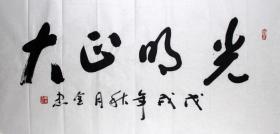 光明正大
戊戌年秋月金